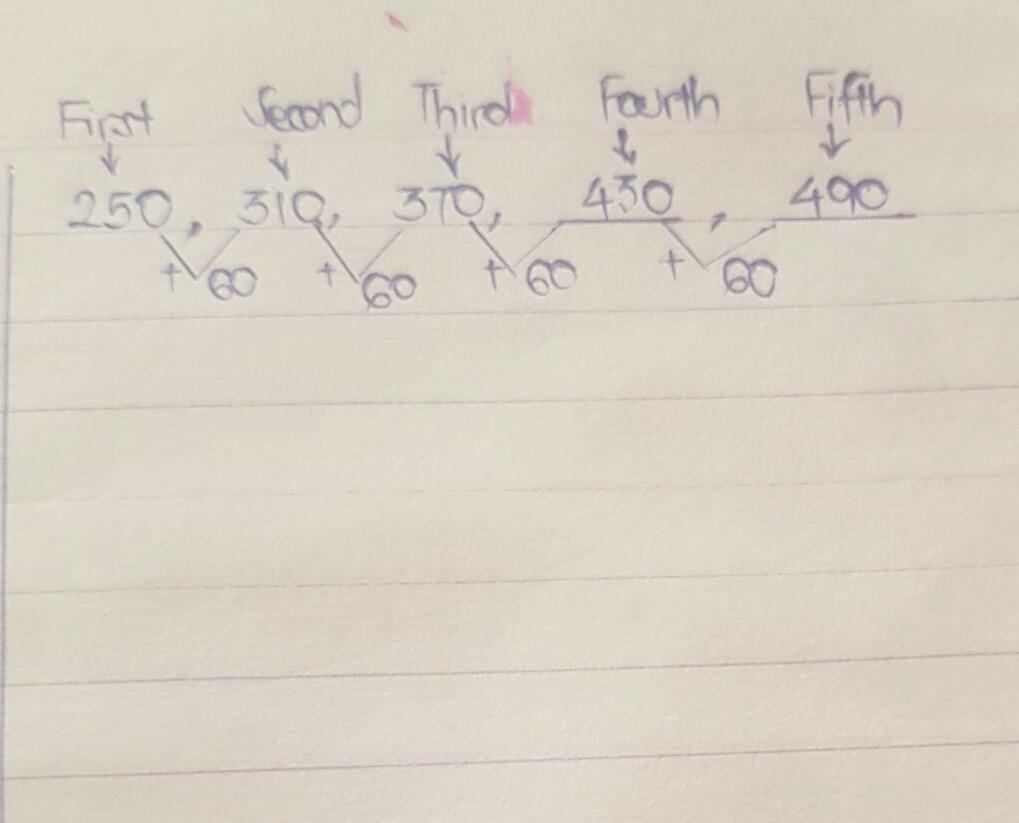 First Second Third Fourth Fifth
↓ ↓ ↓ ↓ ↓
250, 310, 370, 430, 490
+60 +60 +60 +60